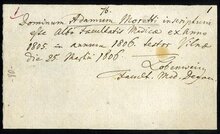 76.
Dominum Adamum Moretti inscriptum
esse Albo Facultatis Medicæ ex anno
1805 in annum 1806. testor Vilnæ
die 25 Martii 1806
Lobenwein
Facult. Med. Decan